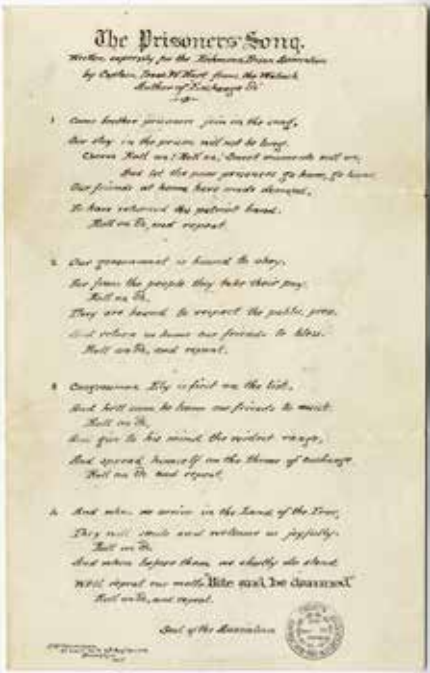 The Prisoners' Song.
Written expressly for the Richmond Prison Association
by Captain Isaac W. Hart from the Wabash
Author of Exchange &c
1 Come brother prisoners join in the song,
Our stay in the prison will not be long.
Chorus Roll on! Roll on, Sweet moments roll on,
And let the poor prisoners go home, go home
Our friends at home have made demand,
To have returned this patriot band.
Roll on &c, and repeat.
2 Our government is bound to obey,
For from the people they take their pay.
Roll on &c,
They are bound to respect the public,
And return us home our friends to bless.
Roll on &c, and repeat.
3 Congressman Ely is first on the list,
And he'll soon be home our friends to assist.
Roll on &c.
And give to his mind the widest range,
And spread himself on the theme of exchange
Roll on &c and repeat.
4 And when we arrive in the Land of the Free,
They will smile and welcome us joyfully.
Roll on &c,
And when before them we shortly do stand
We'll repeat our motto "Bite and be damned"
Roll on &c, and repeat.
Seal of the Association